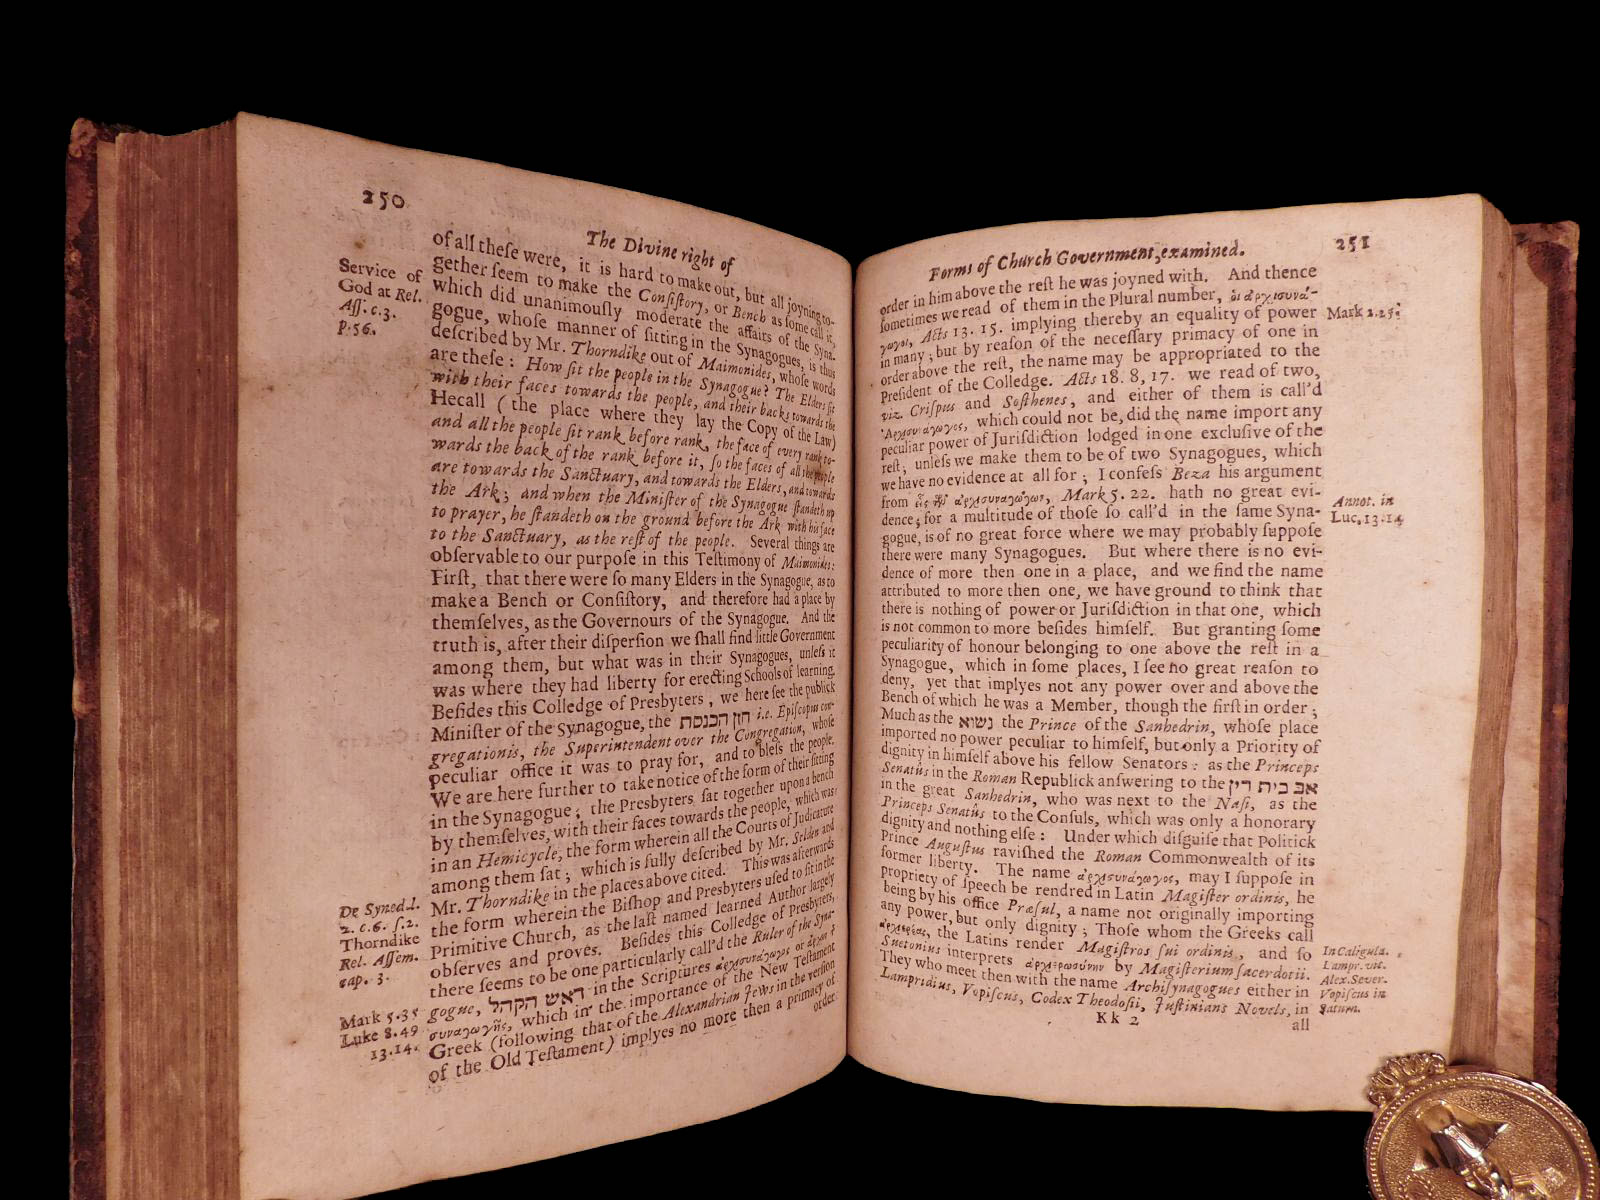 250
The Divine right of
Service of
God at Rel.
Aſſ. c. 3.
p. 56.
of all theſe were, it is hard to make out, but all joyning to-
gether ſeem to make the Conſiſtory, or Bench as ſome call it,
which did unanimouſly moderate the affairs of the Syna-
gogue, whoſe manner of ſitting in the Synagogues, is thus
deſcribed by Mr. Thorndike out of Maimonides, whoſe words
are theſe: How ſit the people in the Synagogue? The Elders ſit
with their faces towards the people, and their backs towards the
Hecall (the place where they lay the Copy of the Law)
and all the people ſit rank before rank, the face of every rank to-
wards the back of the rank before it, ſo the faces of all the people
are towards the Sanctuary, and towards the Elders, and towards
the Ark; and when the Miniſter of the Synagogue ſtandeth up
to prayer, he ſtandeth on the ground before the Ark with his face
to the Sanctuary, as the reſt of the people. Several things are
obſervable to our purpoſe in this Teſtimony of Maimonides:
Firſt, that there were ſo many Elders in the Synagogue, as to
make a Bench or Conſiſtory, and therefore had a place by
themſelves, as the Governours of the Synagogue. And the
truth is, after their diſperſion we ſhall find little Government
among them, but what was in their Synagogues, unleſs it
was where they had liberty for erecting Schools of learning.
Beſides this Colledge of Presbyters, we here ſee the publick
Miniſter of the Synagogue, the חזן הכנסת i.e. Epiſcopus con-
gregationis, the Superintendent over the Congregation, whoſe
peculiar office it was to pray for, and to bleſs the people.
We are here further to take notice of the form of their ſitting
in the Synagogue; the Presbyters ſat together upon a bench
by themſelves, with their faces towards the people, which was
in an Hemicycle, the form wherein all the Courts of Judicature
among them ſat; which is fully deſcribed by Mr. Selden and
Mr. Thorndike in the places above cited. This was afterwards
the form wherein the Biſhop and Presbyters uſed to ſit in the
Primitive Church, as the laſt named learned Author largely
obſerves and proves. Beſides this Colledge of Presbyters,
there ſeems to be one particularly call'd the Ruler of the Syna-
gogue, ראש הקהל in the Scriptures ἀρχισυνάγωγος or ἄρχων τ͂
συναγωγῆς, which in the importance of the New Teſtament
Greek (following that of the Alexandrian Jews in the verſion
of the Old Teſtament) implyes no more then a primacy of
order
De Syned. l.
2. c. 6. ſ. 2.
Thorndike
Rel. Aſſem.
cap. 3.
Mark 5.35
Luke 8.49
13.14.
Forms of Church Government, examined.
251
order in him above the reſt he was joyned with. And thence
ſometimes we read of them in the Plural number, οἱ ἀρχισυνά-
γωγοι, Acts 13. 15. implying thereby an equality of power
in many; but by reaſon of the neceſſary primacy of one in
order above the reſt, the name may be appropriated to the
Preſident of the Colledge. Acts 18. 8, 17. we read of two,
viz. Criſpus and Soſthenes, and either of them is call'd
Ἀρχισυνάγωγος, which could not be, did the name import any
peculiar power of Juriſdiction lodged in one excluſive of the
reſt, unleſs we make them to be of two Synagogues, which
we have no evidence at all for; I confeſs Beza his argument
from εἷς τῶν ἀρχισυναγώγων, Mark 5. 22. hath no great evi-
dence; for a multitude of thoſe ſo call'd in the ſame Syna-
gogue, is of no great force where we may probably ſuppoſe
there were many Synagogues. But where there is no evi-
dence of more then one in a place, and we find the name
attributed to more then one, we have ground to think that
there is nothing of power or Juriſdiction in that one, which
is not common to more beſides himſelf. But granting ſome
peculiarity of honour belonging to one above the reſt in a
Synagogue, which in ſome places, I ſee no great reaſon to
deny, yet that implyes not any power over and above the
Bench of which he was a Member, though the firſt in order;
Much as the נשוא the Prince of the Sanhedrin, whoſe place
imported no power peculiar to himſelf, but only a Priority of
dignity in himſelf above his fellow Senators: as the Princeps
Senatûs in the Roman Republick anſwering to the אב בית דין
in the great Sanhedrin, who was next to the Naſi, as the
Princeps Senatûs to the Conſuls, which was only a honorary
dignity and nothing elſe: Under which diſguiſe that Politick
Prince Auguſtus raviſhed the Roman Commonwealth of its
former liberty. The name ἀρχισυνάγωγος, may I ſuppoſe in
propriety of ſpeech be rendred in Latin Magiſter ordinis, he
being by his office Præſul, a name not originally importing
any power, but only dignity; Thoſe whom the Greeks call
ἀρχιερέας, the Latins render Magiſtros ſui ordinis, and ſo
Suetonius interprets ἀρχιερωσύνην by Magiſterium ſacerdotii.
They who meet then with the name Archiſynagogues either in
Lampridius, Vopiſcus, Codex Theodoſii, Juſtinians Novels, in
Kk 2
all
Mark 1.25.
Annot. in
Luc. 13.14
In Caligula.
Lampr. vit.
Alex. Sever.
Vopiſcus in
Saturn.